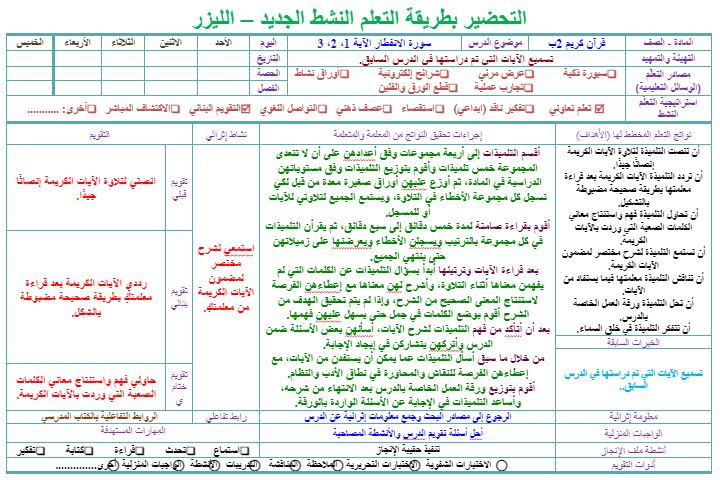 التحضير بطريقة التعلم النشط الجديد – الليزر
المادة - الصف
قرآن كريم 2ب
موضوع الدرس
سورة الانفطار الآية 1، 2، 3
اليوم
الأحد
الاثنين
الثلاثاء
الأربعاء
الخميس
التهيئة والتمهيد
تسميع الآيات التي تم دراستها في الدرس السابق.
التاريخ
مصادر التعلم
(الوسائل التعليمية)
سبورة ذكية
عرض مرئي
شرائح إلكترونية
أوراق نشاط
تجارب عملية
قطع الورق والفلين
الحصة
الفصل
استراتيجية التعلم
النشط
تعلم تعاوني
تفكير ناقد (ابداعي)
استقصاء
عصف ذهني
التواصل اللغوي
التقويم البنائي
الاكتشاف المباشر
أخرى: ...........
نواتج التعلم المخطط لها (الأهداف)
إجراءات تحقيق النواتج من المعلمة والمتعلمة
نشاط إثرائي
التقويم
أن تنصت التلميذة لتلاوة الآيات الكريمة
إنصاتًا جيدًا.
أن تردد التلميذة الآيات الكريمة بعد قراءة
معلمتها بطريقة صحيحة مضبوطة
بالتشكيل.
أن تحاول التلميذة فهم واستنتاج معاني
الكلمات الصعبة التي وردت بالآيات
الكريمة.
أن تستمع التلميذة لشرح مختصر لمضمون
الآيات الكريمة.
أن تناقش التلميذة معلمتها فيما يستفاد من
الآيات.
أن تحل التلميذة ورقة العمل الخاصة
بالدرس.
أن تتفكر التلميذة في خلق السماء.
الخبرات السابقة
تسميع الآيات التي تم دراستها في الدرس
السابق..
أقسم التلميذات إلى أربعة مجموعات وفق أعدادهن على أن لا تتعدى
المجموعة خمس تلميذات وأقوم بتوزيع التلميذات وفق مستوياتهن
الدراسية في المادة، ثم أوزع عليهن أوراق صغيرة معدة من قبل لكي
تسجل كل مجموعة الأخطاء في التلاوة، ويستمع الجميع لتلاوتي للآيات
أو للمسجل.
أقوم بقراءة صامتة لمدة خمس دقائق إلى سبع دقائق، ثم يقرأن التلميذات
في كل مجموعة بالترتيب ويسجلن الأخطاء ويعرضنها على زميلاتهن
حتى ينتهي الجميع.
بعد قراءة الآيات وترتيلها أبدأ بسؤال التلميذات عن الكلمات التي لم
يفهمن معناها أثناء التلاوة، وأشرح لهن معناها مع إعطاءهن الفرصة
لاستنتاج المعنى الصحيح من الشرح، وإذا لم يتم تحقيق الهدف من
الشرح أقوم بوضع الكلمات في جمل حتى يسهل عليهن فهمها.
بعد أن أتأكد من فهم التلميذات لشرح الآيات، أسألهن بعض الأسئلة ضمن
الدرس وأتركهن يتشاركن في إيجاد الإجابة.
من خلال ما سبق أسأل التلميذات عما يمكن أن يستفدن من الآيات، مع
إعطاءهن الفرصة للنقاش والمحاورة في نطاق الأدب والنظام.
أقوم بتوزيع ورقة العمل الخاصة بالدرس بعد الانتهاء من شرحه،
وأساعد التلميذات في الإجابة عن الأسئلة الواردة بالورقة.
استمعي لشرح
مختصر
لمضمون
الآيات الكريمة
من معلمتك.
تقويم
قبلي
انصتي لتلاوة الآيات الكريمة إنصاتًا
جيدًا.
تقويم
بنائي
رددي الآيات الكريمة بعد قراءة
معلمتك بطريقة صحيحة مضبوطة
بالشكل.
تقويم
ختام
ي
حاولي فهم واستنتاج معاني الكلمات
الصعبة التي وردت بالآيات الكريمة.
معلومة إثرائية
الرجوع إلى مصادر البحث وجمع معلومات إثرائية عن الدرس
رابط تفاعلي
الروابط التفاعلية بالكتاب المدرسي
الواجبات المنزلية
أحل أسئلة تقويم الدرس والأنشطة المصاحبة
المهارات المستهدفة
أنشطة ملف الإنجاز
تنفيذ حقيبة الإنجاز
استماع
تحدث
قراءة
كتابة
تفكير
أدوات التقويم
الاختبارات الشفوية
الاختبارات التحريرية
الملاحظة
المناقشة
التدريبات
الأنشطة
الواجبات المنزلية
أخرى..............